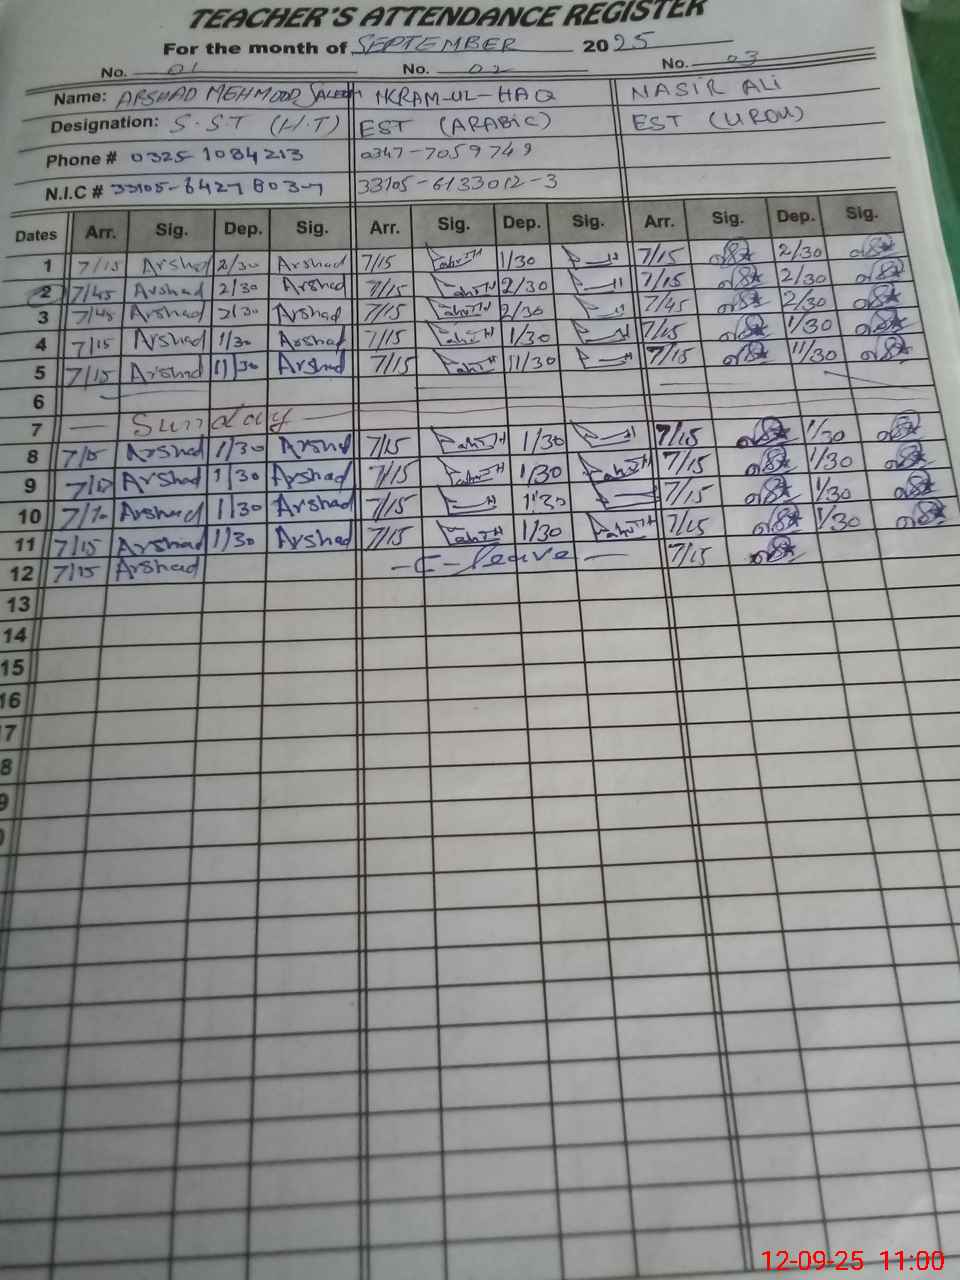 TEACHER'S ATTENDANCE REGISTER
For the month of SEPTEMBER 2025
No. 01 No. 02 No. 03
Name: ARSHAD MEHMOOD SALEEM IKRAM-UL-HAQ NASIR ALI
Designation: S.ST (H.T) EST (ARABIC) EST (URDU)
Phone # 0325-1084213 0347-7059749
N.I.C # 33105-6427803-7 33105-6133012-3
Dates Arr. Sig. Dep. Sig. Arr. Sig. Dep. Sig. Arr. Sig. Dep. Sig.
1 7/15 Arshad 2/30 Arshad 7/15 1/30 7/15 2/30
2 7/45 Arshad 2/30 Arshad 7/15 2/30 7/15 2/30
3 7/45 Arshad 2/30 Arshad 7/15 2/30 7/45 2/30
4 7/15 Arshad 1/30 Arshad 7/15 1/30 7/15 1/30
5 7/15 Arshad 11/30 Arshad 7/15 11/30 7/15 11/30
6
7 Sunday
8 7/15 Arshad 1/30 Arshad 7/15 1/30 7/15 1/30
9 Arshad 1/30 Arshad 7/15 1/30 7/15 1/30
10 Arshad 1/30 Arshad 7/15 1:30 7/15 1/30
11 7/15 Arshad 1/30 Arshad 7/15 1/30 7/15 1/30
12 7/15 Arshad - C-leave - 7/15
13
14
15
16
7
8
9
0
12-09-25 11:00